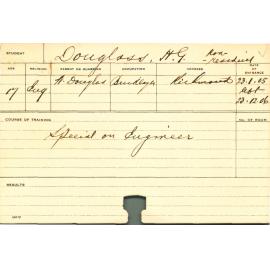 STUDENT Douglass, H.G. Non-
resident
AGE RELIGION PARENT OR GUARDIAN OCCUPATION ADDRESS DATE OF ENTRANCE
17 Eng Richmond 23.1.05
23.12.06
COURSE OF TRAINING NO. OF ROOM
Special on Engineer
RESULTS